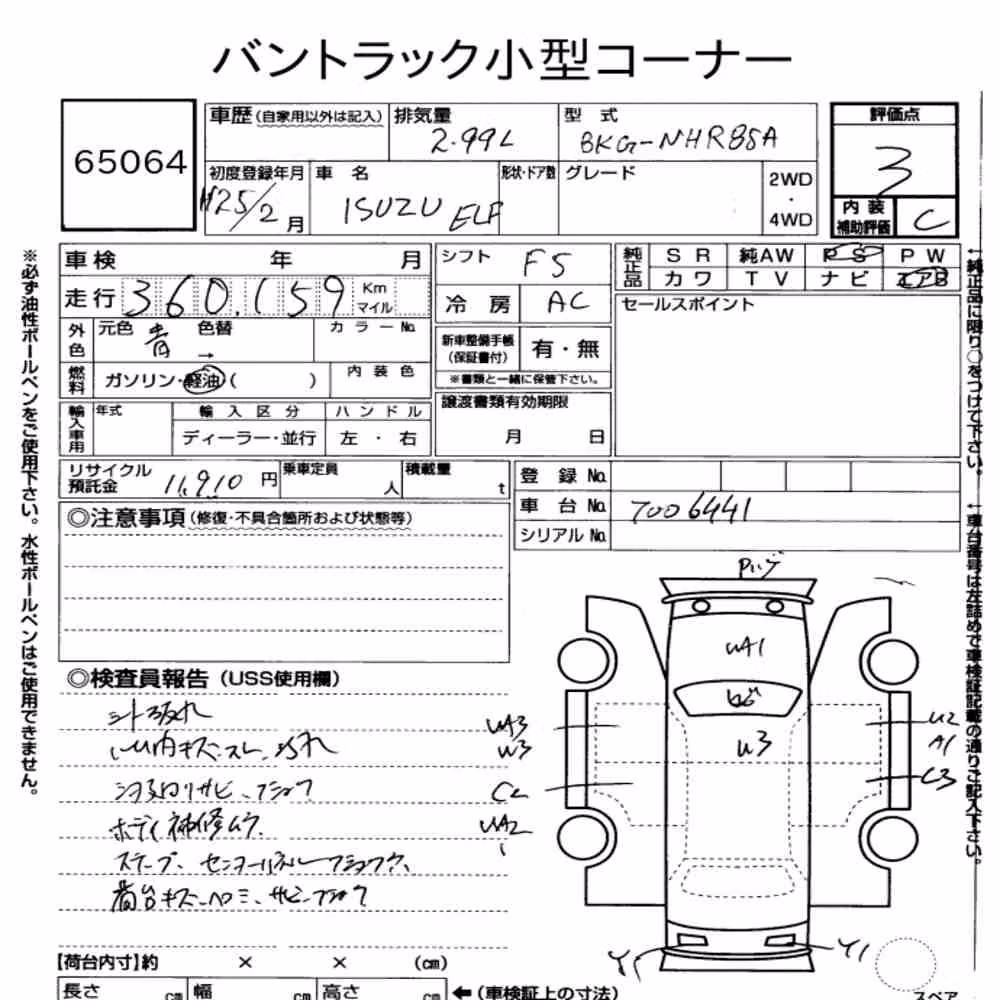 バントラック小型コーナー
65064
車歴 (自家用以外は記入) 排気量 型式 評価点
2.99L BKG-NHR85A 3
初度登録年月 車名 形状・ドア数 グレード 2WD・4WD
H25/2月 ISUZU ELF
内装補助評価 C
車検 年 月 シフト F5 純正品 SR 純AW PS PW
カワ TV ナビ エアB
走行 360,159 Km マイル 冷房 AC セールスポイント
外色 元色 青 色替 → カラーNo.
新車整備手帳 (保証書付) 有・無
※書類と一緒に保管下さい。
燃料 ガソリン・軽油 ( ) 内装色
譲渡書類有効期限 月 日
輸入車用 年式 輸入区分 ハンドル
ディーラー・並行 左・右
リサイクル預託金 11,910 円 乗車定員 人 積載量 t
登録No.
車台No. 7006441
シリアルNo.
◎注意事項 (修復・不具合箇所および状態等)
◎検査員報告 (USS使用欄)
シート破れ
ボディ補修ムラ
荷台キズ ヘコミ、サビ
UA1
W3
UA3
W3
UA2
U2
A1
C3
Y1
Y1
【荷台内寸】約 × × (cm)
長さ cm 幅 cm 高さ cm ←(車検証上の寸法)
スペア
※必ず油性ボールペンをご使用下さい。水性ボールペンはご使用できません。
←純正品に限り○をつけて下さい。
←車台番号は左詰めで車検証記載の通りご記入下さい。